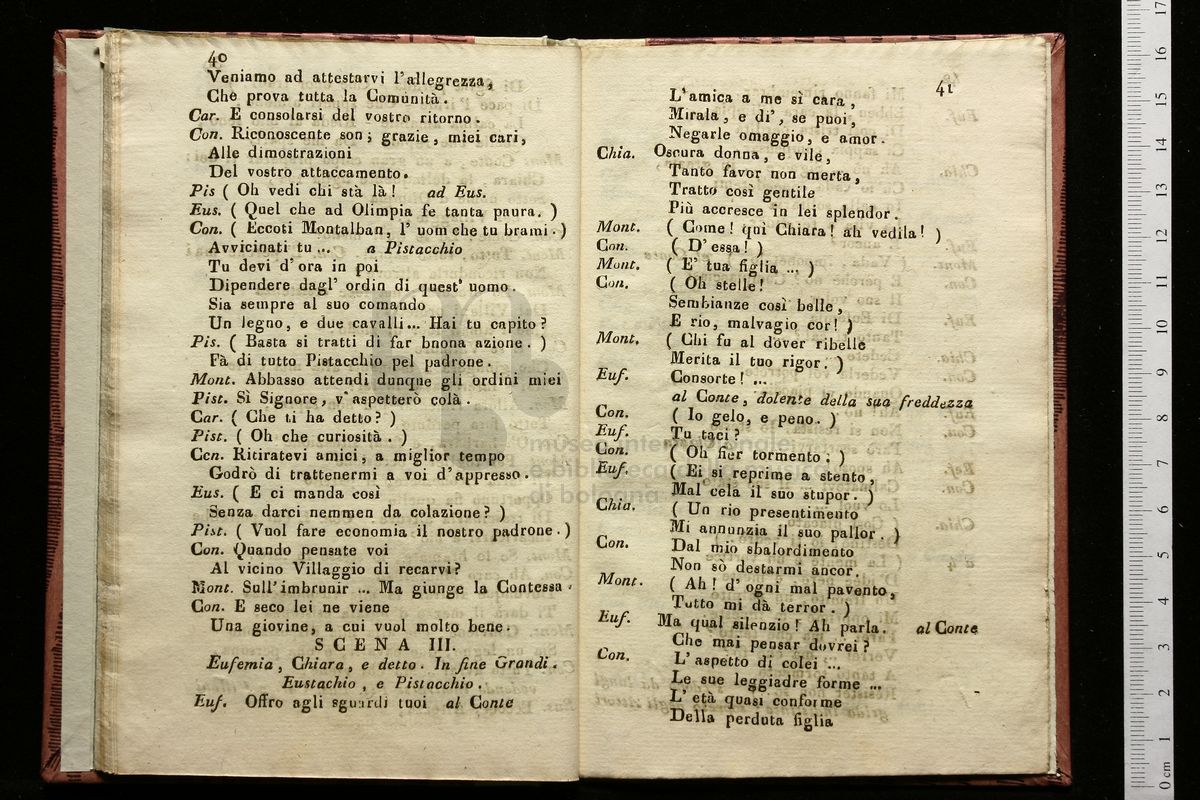 40
Veniamo ad attestarvi l'allegrezza,
Che prova tutta la Comunità.
Car. E consolarsi del vostro ritorno.
Con. Riconoscente son; grazie, miei cari,
Alle dimostrazioni
Del vostro attaccamento.
Pis ( Oh vedi chi stà là! ad Eus.
Eus. ( Quel che ad Olimpia fe tanta paura. )
Con. ( Eccoti Montalban, l' uom che tu brami. )
Avvicinati tu ... a Pistacchio
Tu devi d' ora in poi
Dipendere dagl' ordin di quest' uomo.
Sia sempre al suo comando
Un legno, e due cavalli... Hai tu capito?
Pis. ( Basta si tratti di far bnona azione. )
Fà di tutto Pistacchio pel padrone.
Mont. Abbasso attendi dunque gli ordini miei
Pist. Sì Signore, v' aspetterò colà.
Car. ( Che ti ha detto? )
Pist. ( Oh che curiosità. )
Con. Ritiratevi amici, a miglior tempo
Godrò di trattenermi a voi d'appresso.
Eus. ( E ci manda così
Senza darci nemmen da colazione? )
Pist. ( Vuol fare economia il nostro padrone. )
Con. Quando pensate voi
Al vicino Villaggio di recarvi?
Mont. Sull'imbrunir ... Ma giunge la Contessa.
Con. E seco lei ne viene
Una giovine, a cui vuol molto bene.
SCENA III.
Eufemia, Chiara, e detto. In fine Grandi.
Eustachio, e Pistacchio.
Euf. Offro agli sguardi tuoi al Conte
41
L'amica a me si cara,
Mirala, e di', se puoi,
Negarle omaggio, e amor.
Chia. Oscura donna, e vile,
Tanto favor non merta,
Tratto così gentile
Più accresce in lei splendor.
Mont. ( Come! quì Chiara! ah vedila! )
Con. ( D' essa! )
Mont. ( E' tua figlia ... )
Con. ( Oh stelle!
Sembianze così belle,
E rio, malvagio cor! )
Mont. ( Chi fu al dover ribelle
Merita il tuo rigor. )
Euf. Consorte! ...
al Conte, dolente della sua freddezza
Con. ( Io gelo, e peno. )
Euf. Tu taci?
Con. ( Oh fier tormento; )
Euf. ( Ei si reprime a stento,
Mal cela il suo stupor. )
Chia. ( Un rio presentimento
Mi annunzia il suo pallor. )
Con. Dal mio sbalordimento
Non sò destarmi ancor.
Mont. ( Ah! d' ogni mal pavento,
Tutto mi dà terror. )
Euf. Ma qual silenzio! Ah parla. al Conte
Che mai pensar dovrei?
Con. L' aspetto di colei ...
Le sue leggiadre forme ...
L' età quasi conforme
Della perduta figlia